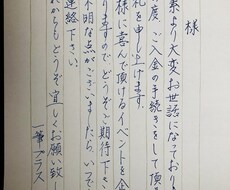 様
素より大変お世話になっており
度ご入金の手続きをして頂
礼を申し上げます。
様に喜んで頂けるイベントを企
りますのでどうぞご期待下さい
不明な点がございましたら、いつで
連絡下さい。
れからもどうぞ宜しくお願い致し
一筆プラス